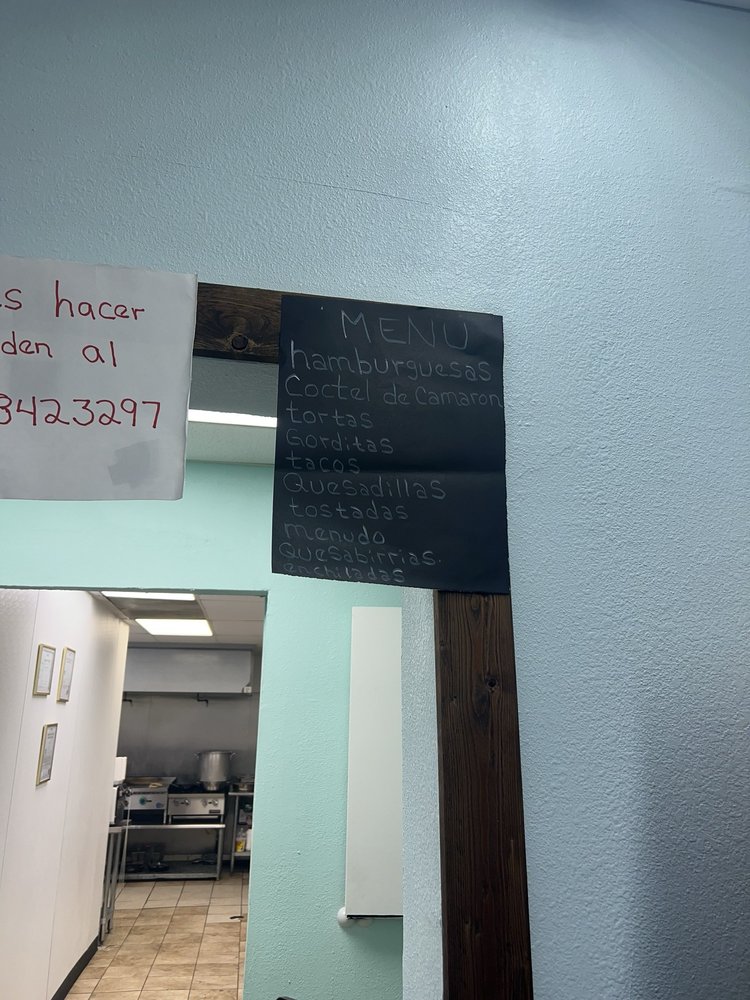 s hacer
den al
3423297
MENU
hamburguesas
Coctel de Camaron
tortas
Gorditas
tacos
Quesadillas
tostadas
menudo
Quesabirrias.
enchiladas